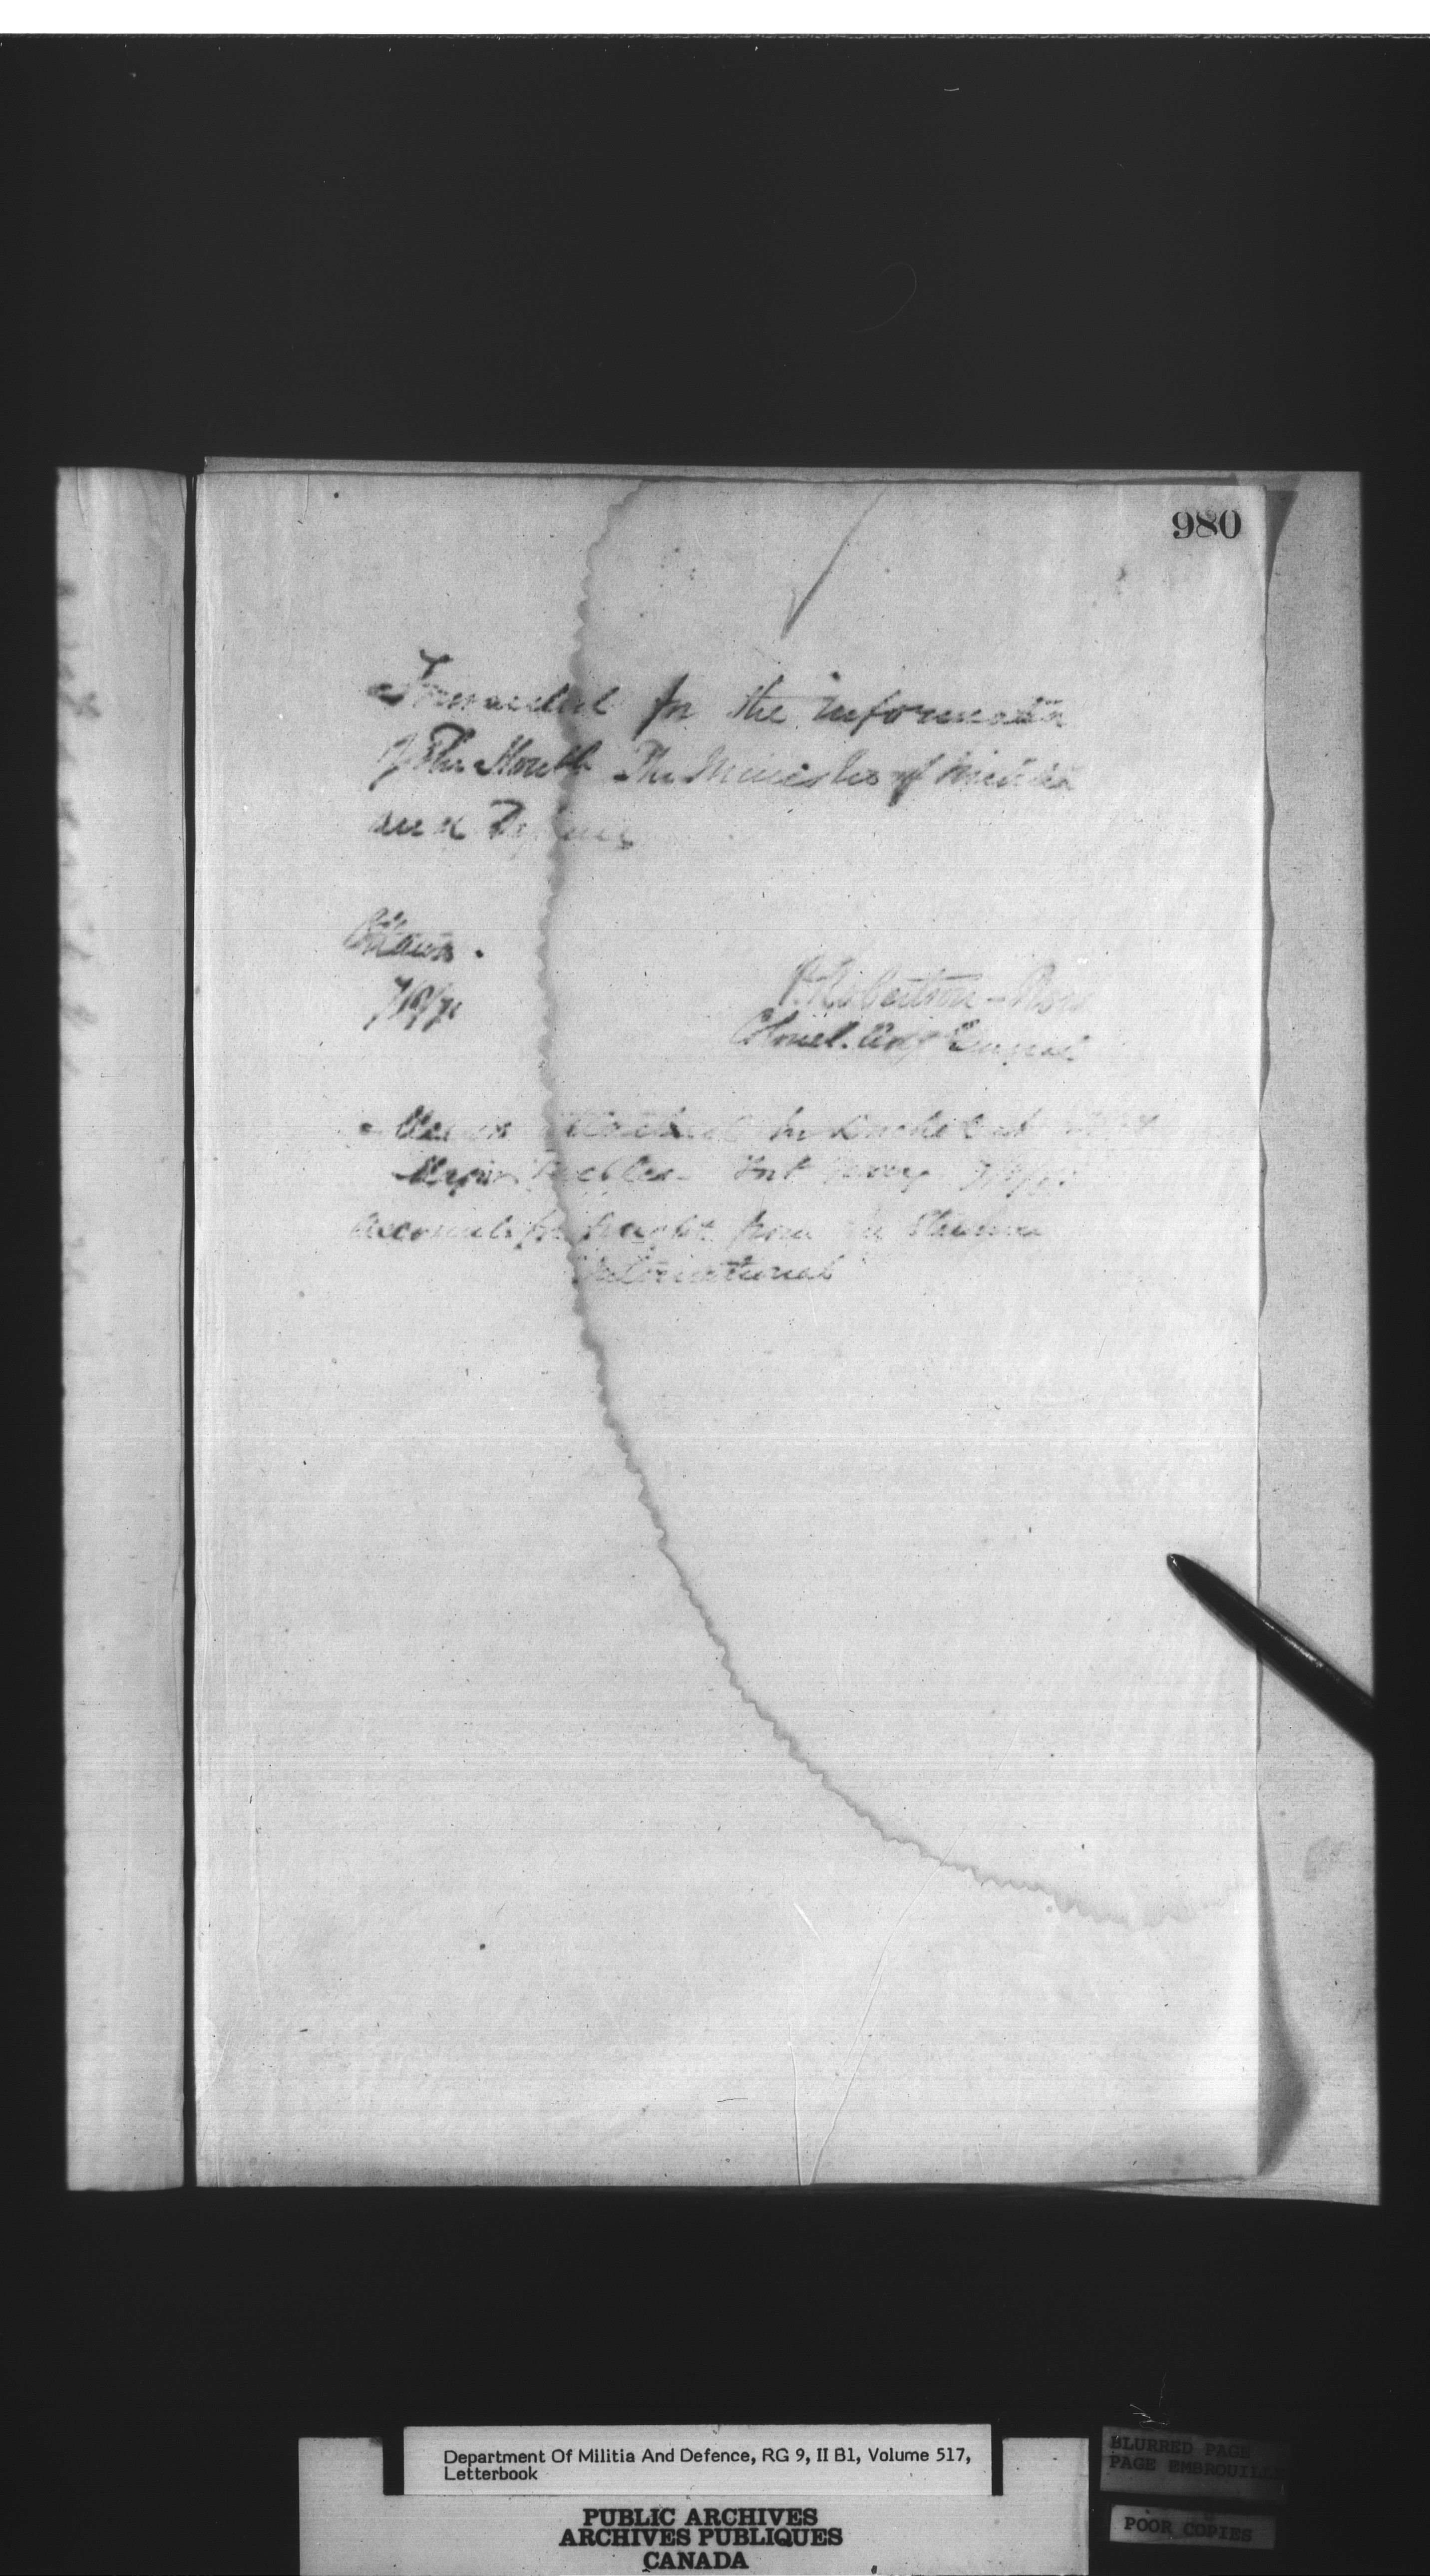 980
Forwarded for the information
of The Honble The Minister of Militia
and Defence
Ottawa.
P. Robertson-Ross
Colonel. Adjt General
Major Peebles Fort Garry
Accounts for freight from the Steamer
International
Department Of Militia And Defence, RG 9, II B1, Volume 517,
Letterbook
PUBLIC ARCHIVES
ARCHIVES PUBLIQUES
CANADA
BLURRED PAGE
PAGE EMBROUILLÉE
POOR COPIES